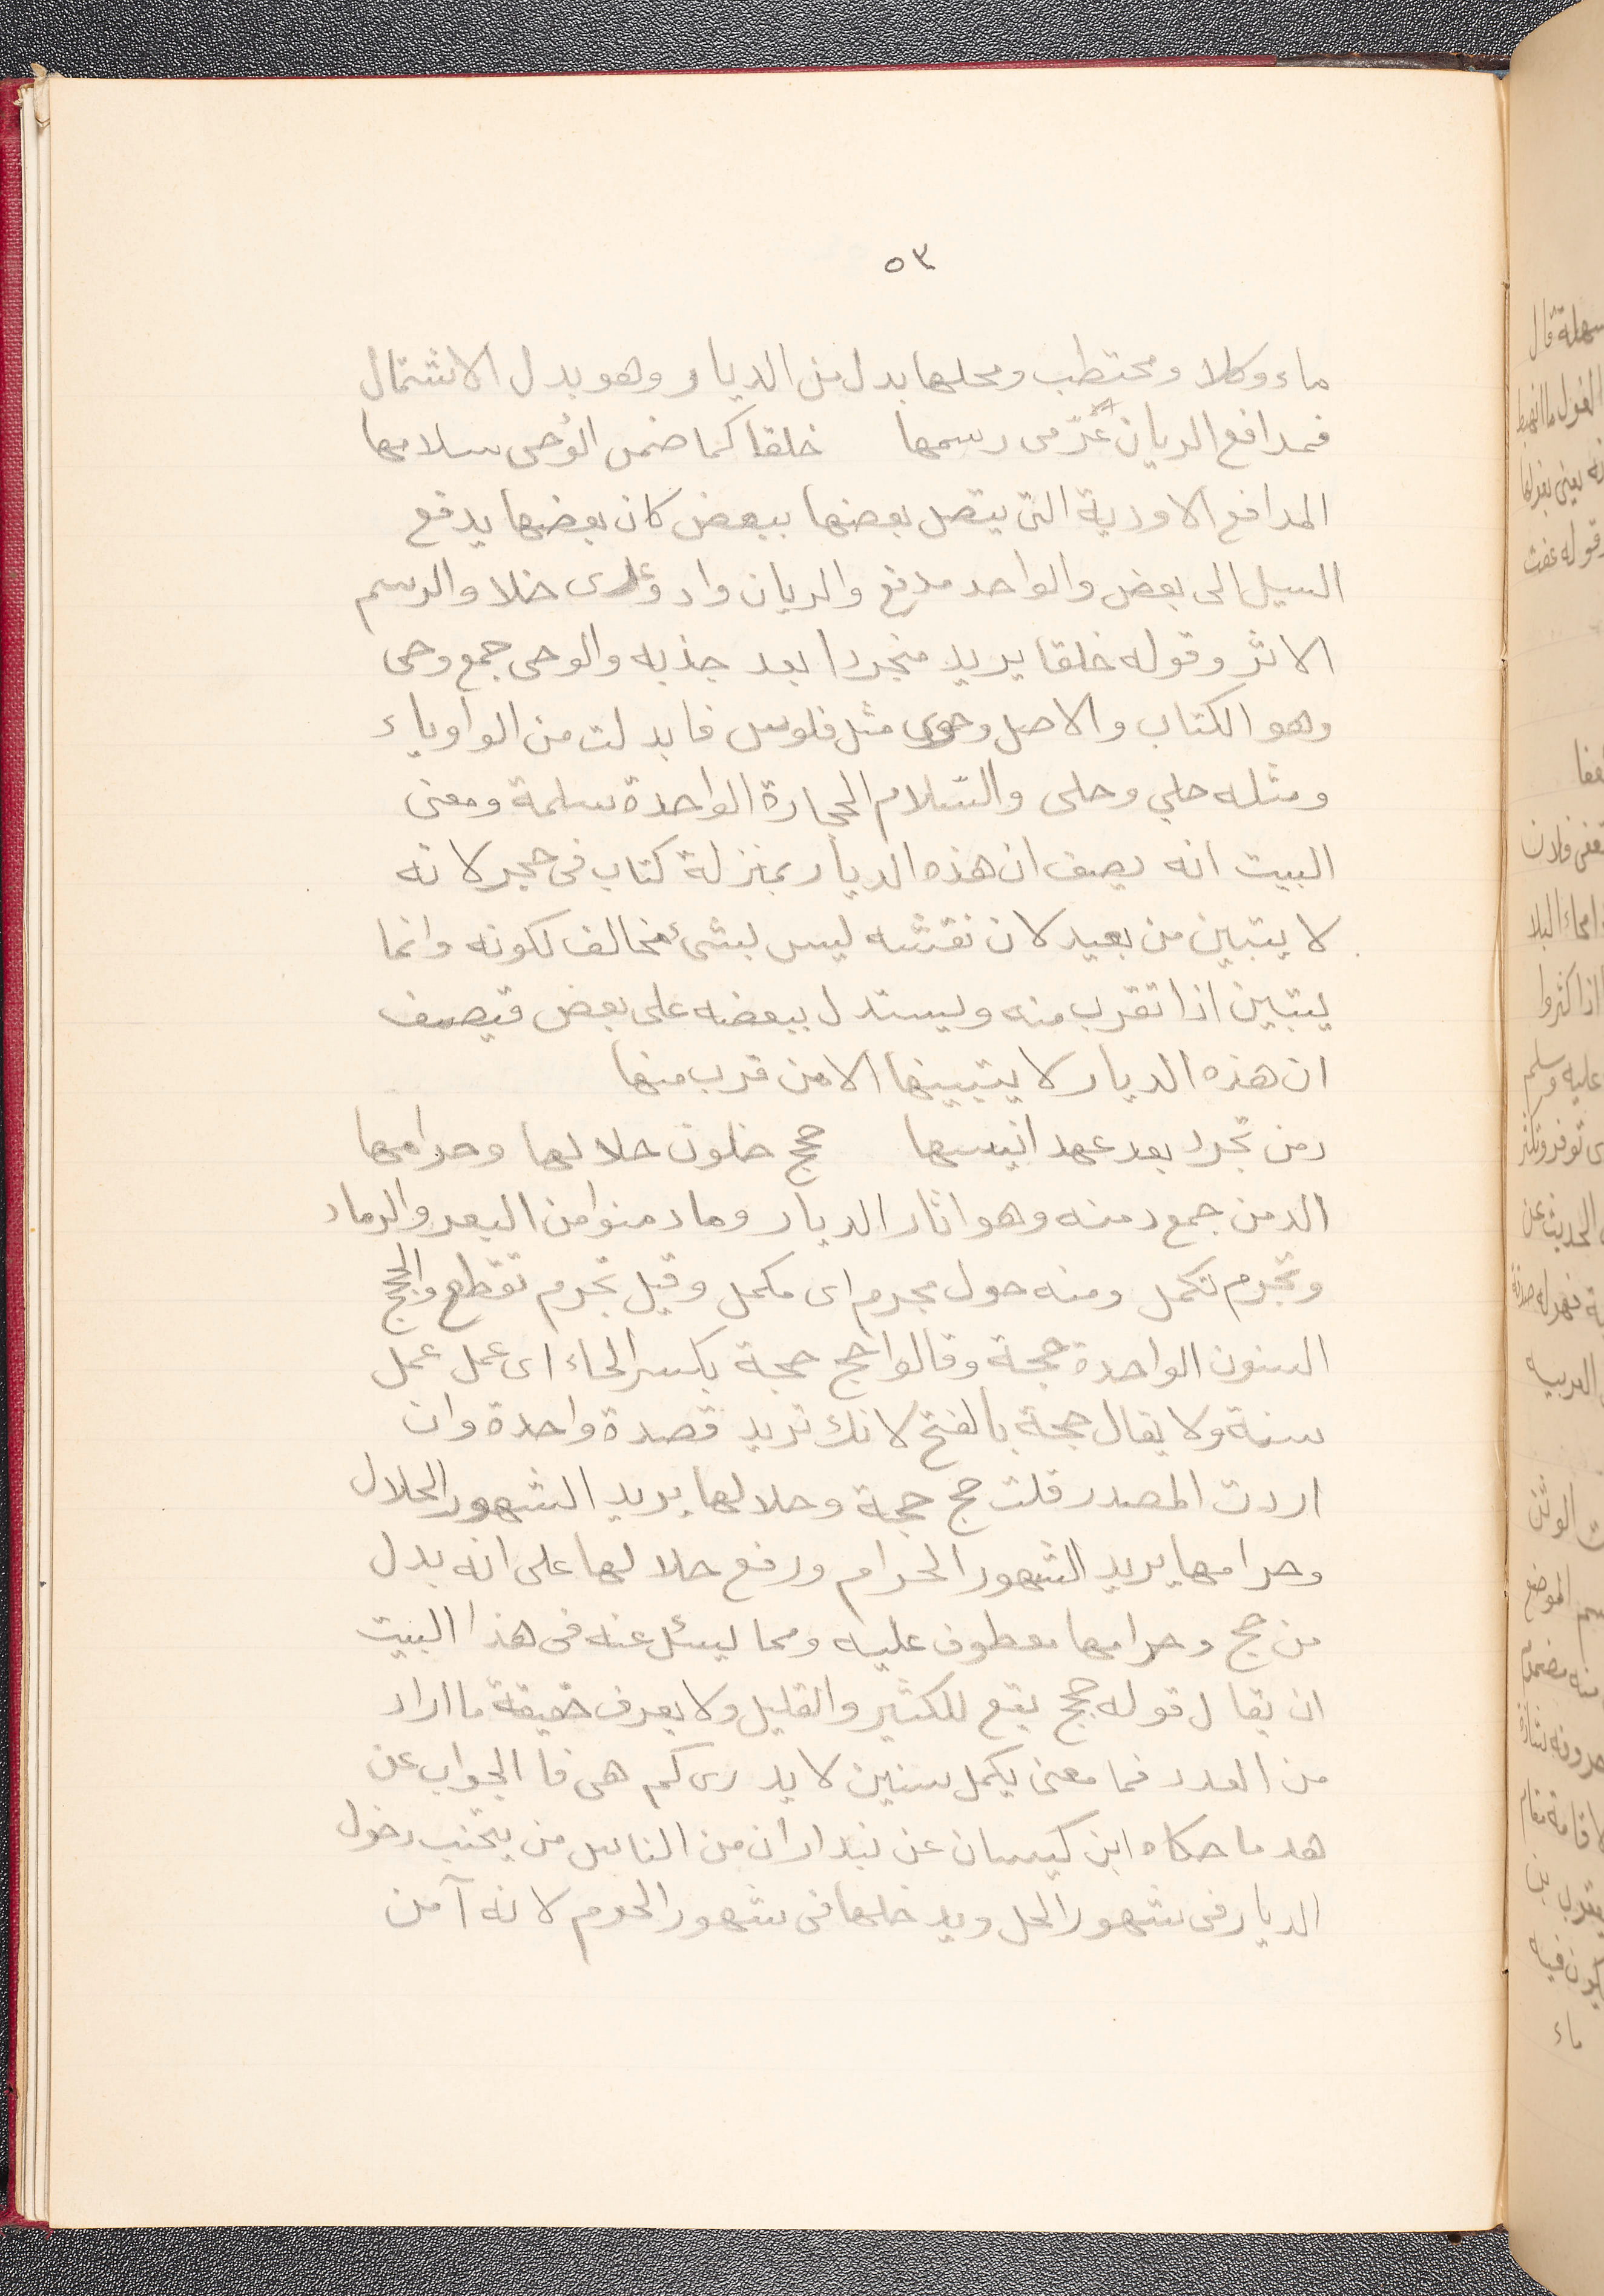 ٥٣
ماء وكلا ومحتطب ومحلها بدل من الديار وهو بدل الاشتمال
فمدافع الريان عُرّى رسمها خلقا كما ضمن الوُحى سلامها
المدافع الاودية التى يتصل بعضها ببعض كان بعضها يدفع
السيل الى بعض والواحد مدفع والريان واد وعرى خلا والرسم
الاثر وقوله خلقا يريد منجردا بعد جذبه والوحى جمع وحى
وهو الكتاب والاصل وحوى مثل فلوس فابدلت من الواو ياء
ومثله حلي وحلى والسّلام الحجارة الواحدة سلمة ومعنى
البيت انه يصف ان هذه الديار بمنزلة كتاب فى حجر لانه
لا يتبين من بعيد لان نقشه ليس بشئ مخالف لكونه وانما
يتبين اذا تقرب منه ويستدل ببعضه على بعض فيصف
ان هذه الديار لا يتبينها الا من قرب منها
دمن تجرد بعد عهد انيسها حجج خلون حلالها وحرامها
الدمن جمع دمنه وهو اثار الديار وما دمنوا من البعر والرماد
وتجرم تكمل ومنه حول مجرم اى مكمل وقيل تجرم تقطع والحجج
السنون الواحدة حجة وقالوا حج حجة بكسر الحاء اى عمل عمل
سنة ولا يقال حجة بالفتح لانك تريد قصدة واحدة وان
اردت المصدر قلت حج حجة وحلالها يريد الشهور الحلال
وحرامها يريد الشهور الحرام ورفع حلالها على انه بدل
من حجج وحرامها معطوف عليه ومما يسئل عنه فى هذا البيت
ان يقال قوله حجج يقع للكثير والقليل ولا يعرف حقيقة ما اراد
من العدد فما معنى يكمل سنين لا يدرى كم هى فا الجواب عن
هد ما حكاه ابن كيسان عن بندار ان من الناس من يتجنب دخول
الديار فى شهور الحل ويدخلها فى شهور الحرم لانه آمن